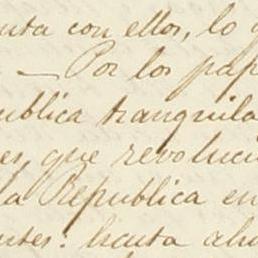 nta con ellos, lo q
— Por los pap
ublica tranquila
es, que revoluci
la Republica en
ntes: hasta aho